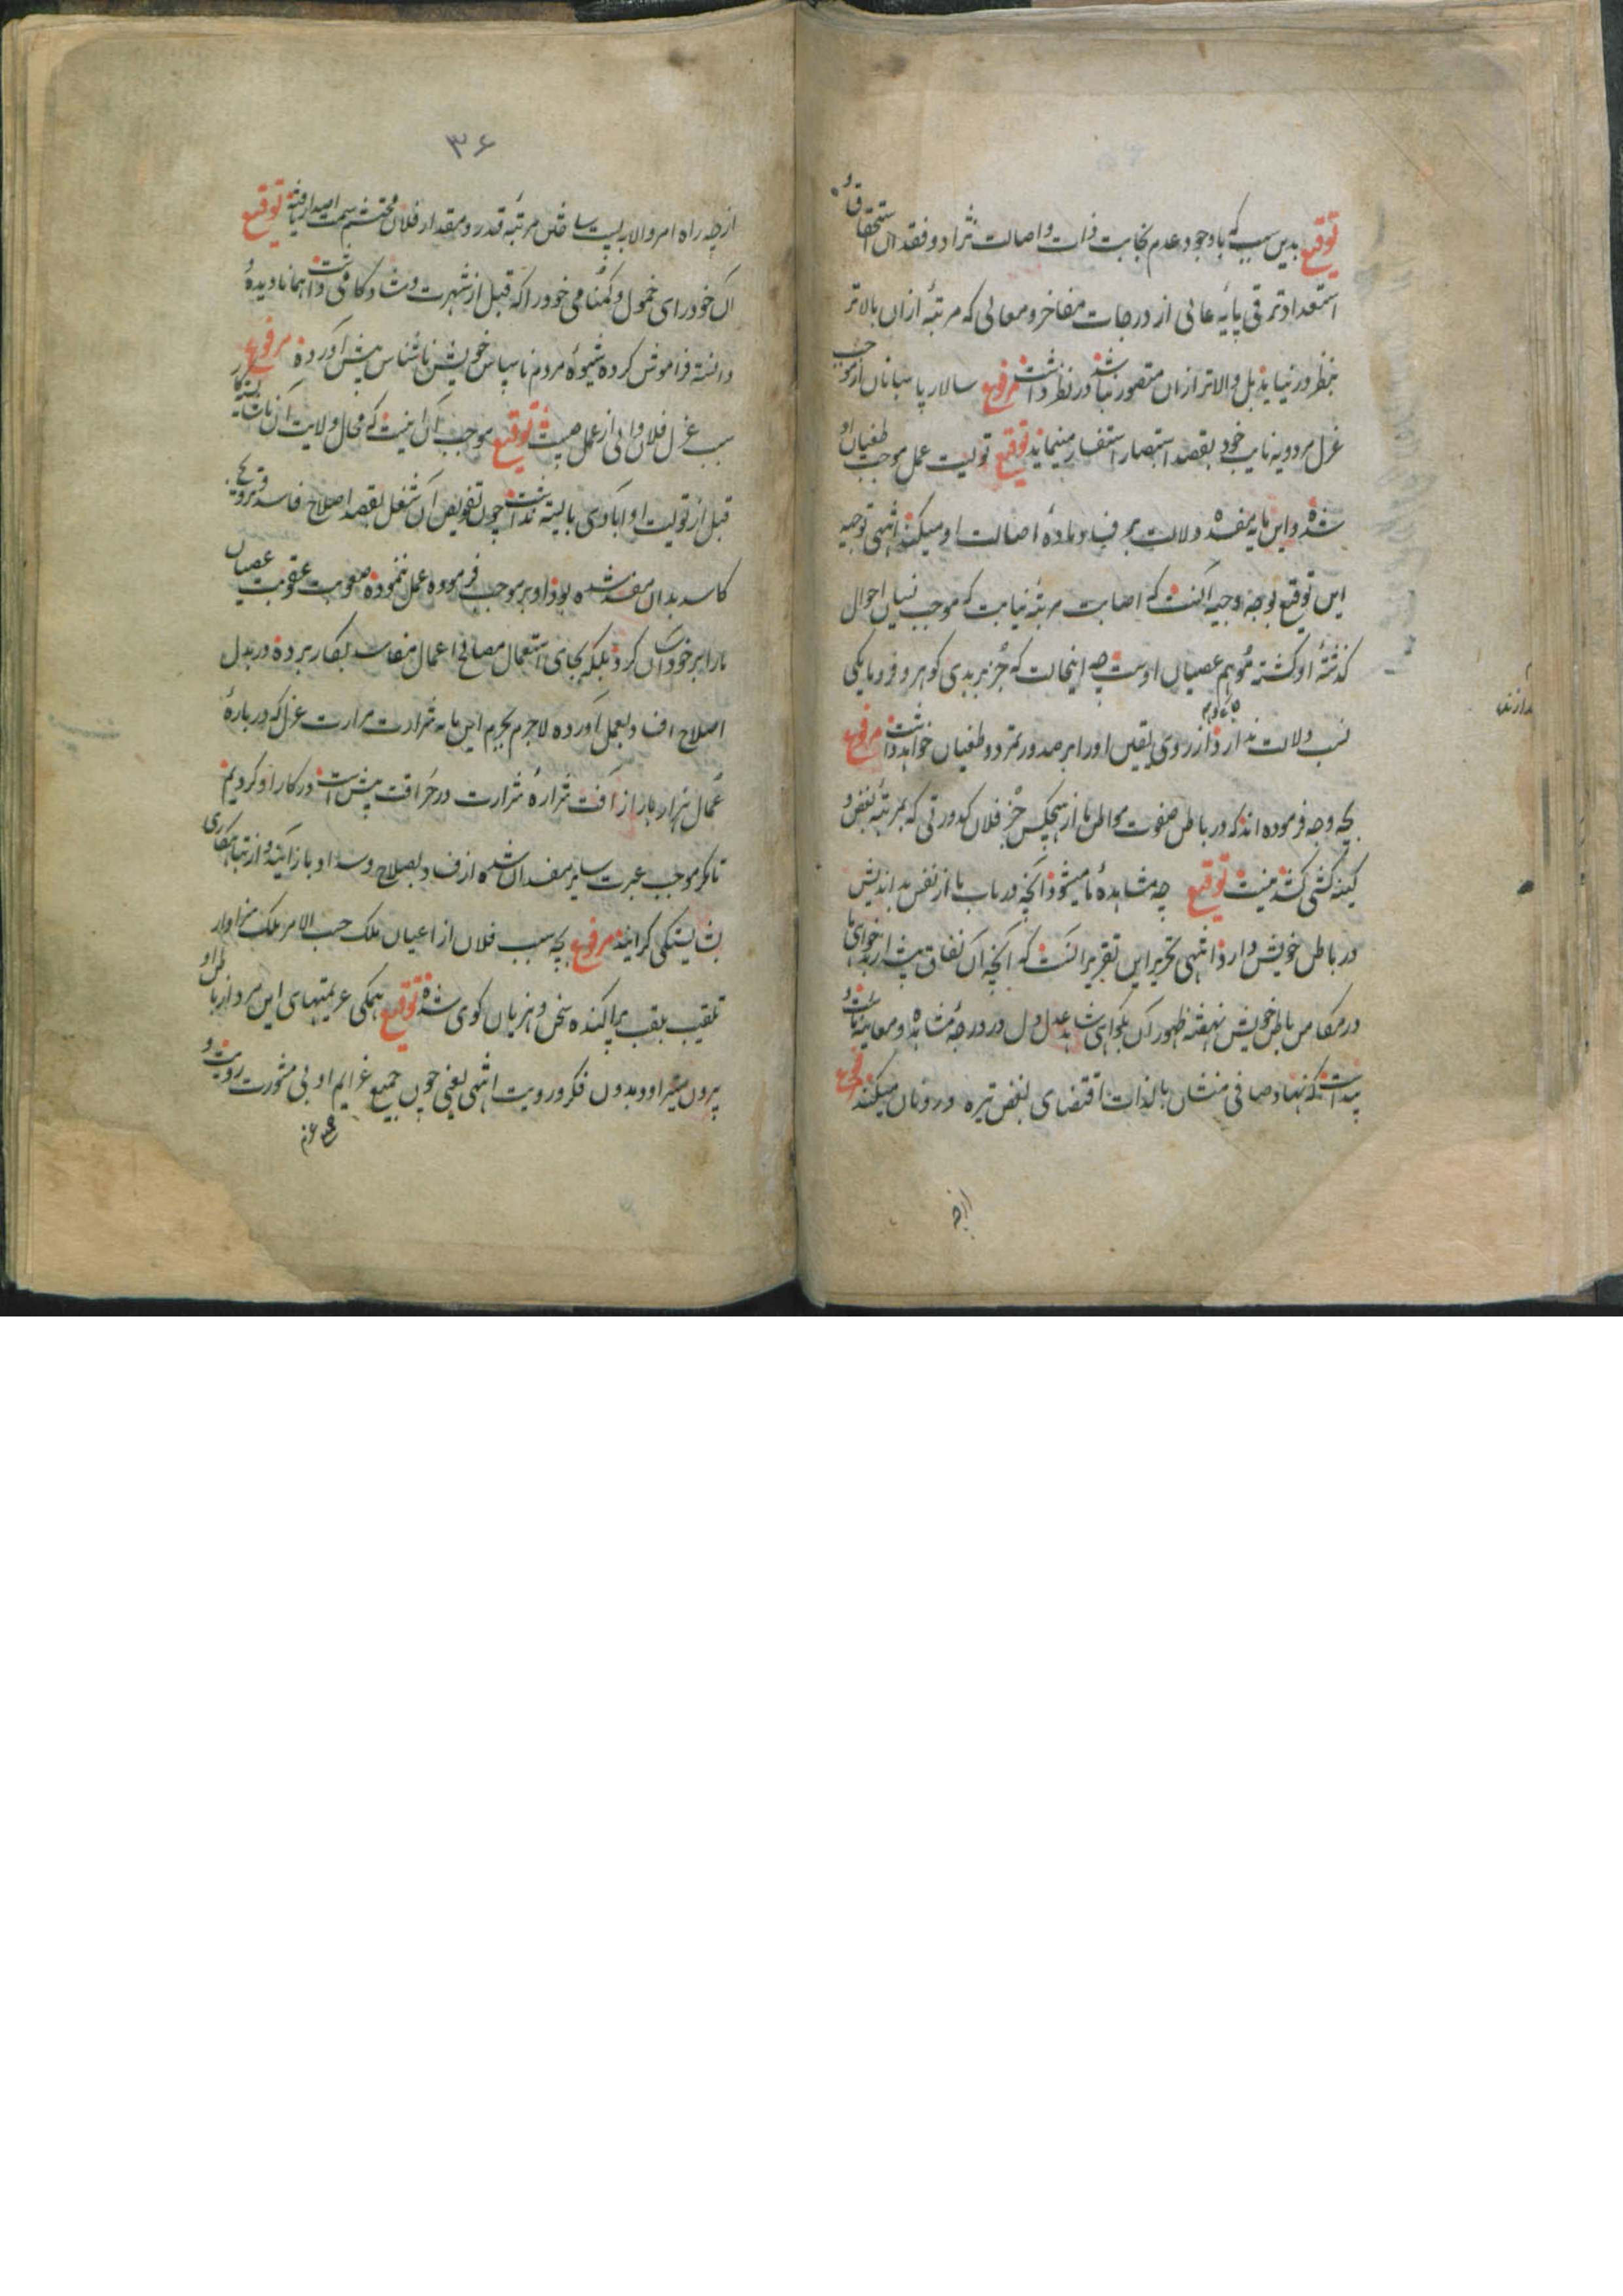 توقیع بدین سبب که باوجود عدم نجابت ذات و اصالت نژاد و فقدان استحقاق و
استعداد ترقی پایه عالی از درجات مفاخر و معالی که مرتبهٔ ازان بالاتر
بنظر در نیاید بل والاتر ازان متصور نباشد در نظر داشت مرفوع سالار پاسبانان از موجب
عزل مردویه نایب خود بقصد استبصار استفسار مینماید توقیع تولیت عمل موجب طغیان او
شده و این مایه مفسده دلالت بر فساد مادهٔ اصالت او میکند انتهی توجیه
این توقیع بوجه وجیه آنست که اصابت مرتبهٔ نیابت که موجب نسیان احوال
گذشتهٔ او گشته موهم عصیان اوست چه اینحالت که جز بر بدی گوهر و فرومایگی
نسب دلالت ندارد از روی یقین او را بر صدور تمرد و طغیان خواهد داشت مرفوع
بچه وجه فرموده اند که در باطن صفوت مواطن ما از هیچکس جز فلان کدورتی که بمرتبهٔ بغض و
کینه کشی کشد نیست توقیع چه مشاهدهٔ ما میشود آنچه در باب ما از نفس بد اندیش
در باطن خویش دارد انتهی تحریر این تقریر آنست که آنچه آن نفاق پیشه از بدخواهی ما
در مکامن باطن خویش نهفته ظهور آن بگواهی شاهد عدل دل در درجهٔ مشاهده و معاینهٔ ماست و
پیداست که نهاد صافی منشان بالذات اقتضای بغض تیره درونان میکند مرفوع
ازچه
۳۶
ازچه راه امر والا به پست ساختن مرتبهٔ قدر و مقدار فلان محتشم سمت اصدار یافته توقیع
آن خودرای خمول و گمنامی خود را که قبل از شهرت و شادکامی داشت همانا دیده و
دانسته فراموش کرده شیوهٔ مردم ناسپاس خویش ناشناس پیش آورده مرفوع
سبب عزل فلان والی از عمل چیست توقیع موجب آن اینست که محال ولایت آن
قبل از تولیت او آبادی بایسته نداشت چون تفویض آن شغل بقصد اصلاح فاسد و ترویج
کاسد بدان مفسد شده بود او بر موجب فرموده عمل ننموده صعوبت عقوبت عصیان
ما را بر خود آسان کرد بلکه بجای استعمال مصالح اعمال مفاسد بکار برده در بدل
اصلاح افساد بعمل آورده لاجرم بجرم این مایه شرارت مرارت عزل که دربارهٔ
عمال هزار بار از آفت شرارهٔ شرارت در حراقت بیش است در کار او کردیم
تا مگر موجب عبرت سایر مفسدان شده از فساد بصلاح و سداد باز آیند و از تباهکاری
بشایستگی گرایند مرفوع بچه سبب فلان از اعیان ملک حسب الامر ملک سزاوار
تلقیب بلقب پراکنده سخن و هزیان گوی شده توقیع همگی عزیمتهای این مرد از باطن او
بیرون میتراود بدون فکر و رویت انتهی یعنی چون جمیع عزایم او بی مشورت رویت و